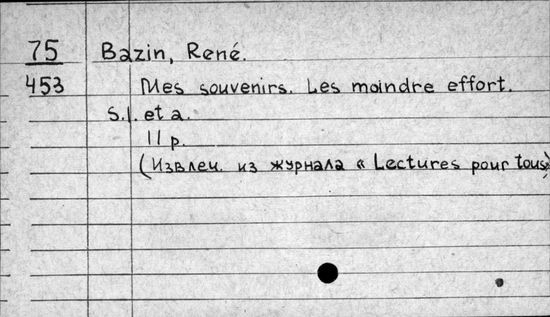 75 Bazin, René.
453 Mes souvenirs. Les moindre effort.
S.l. et a.
11 p.
(Извлеч. из журнала « Lectures pour tous»)